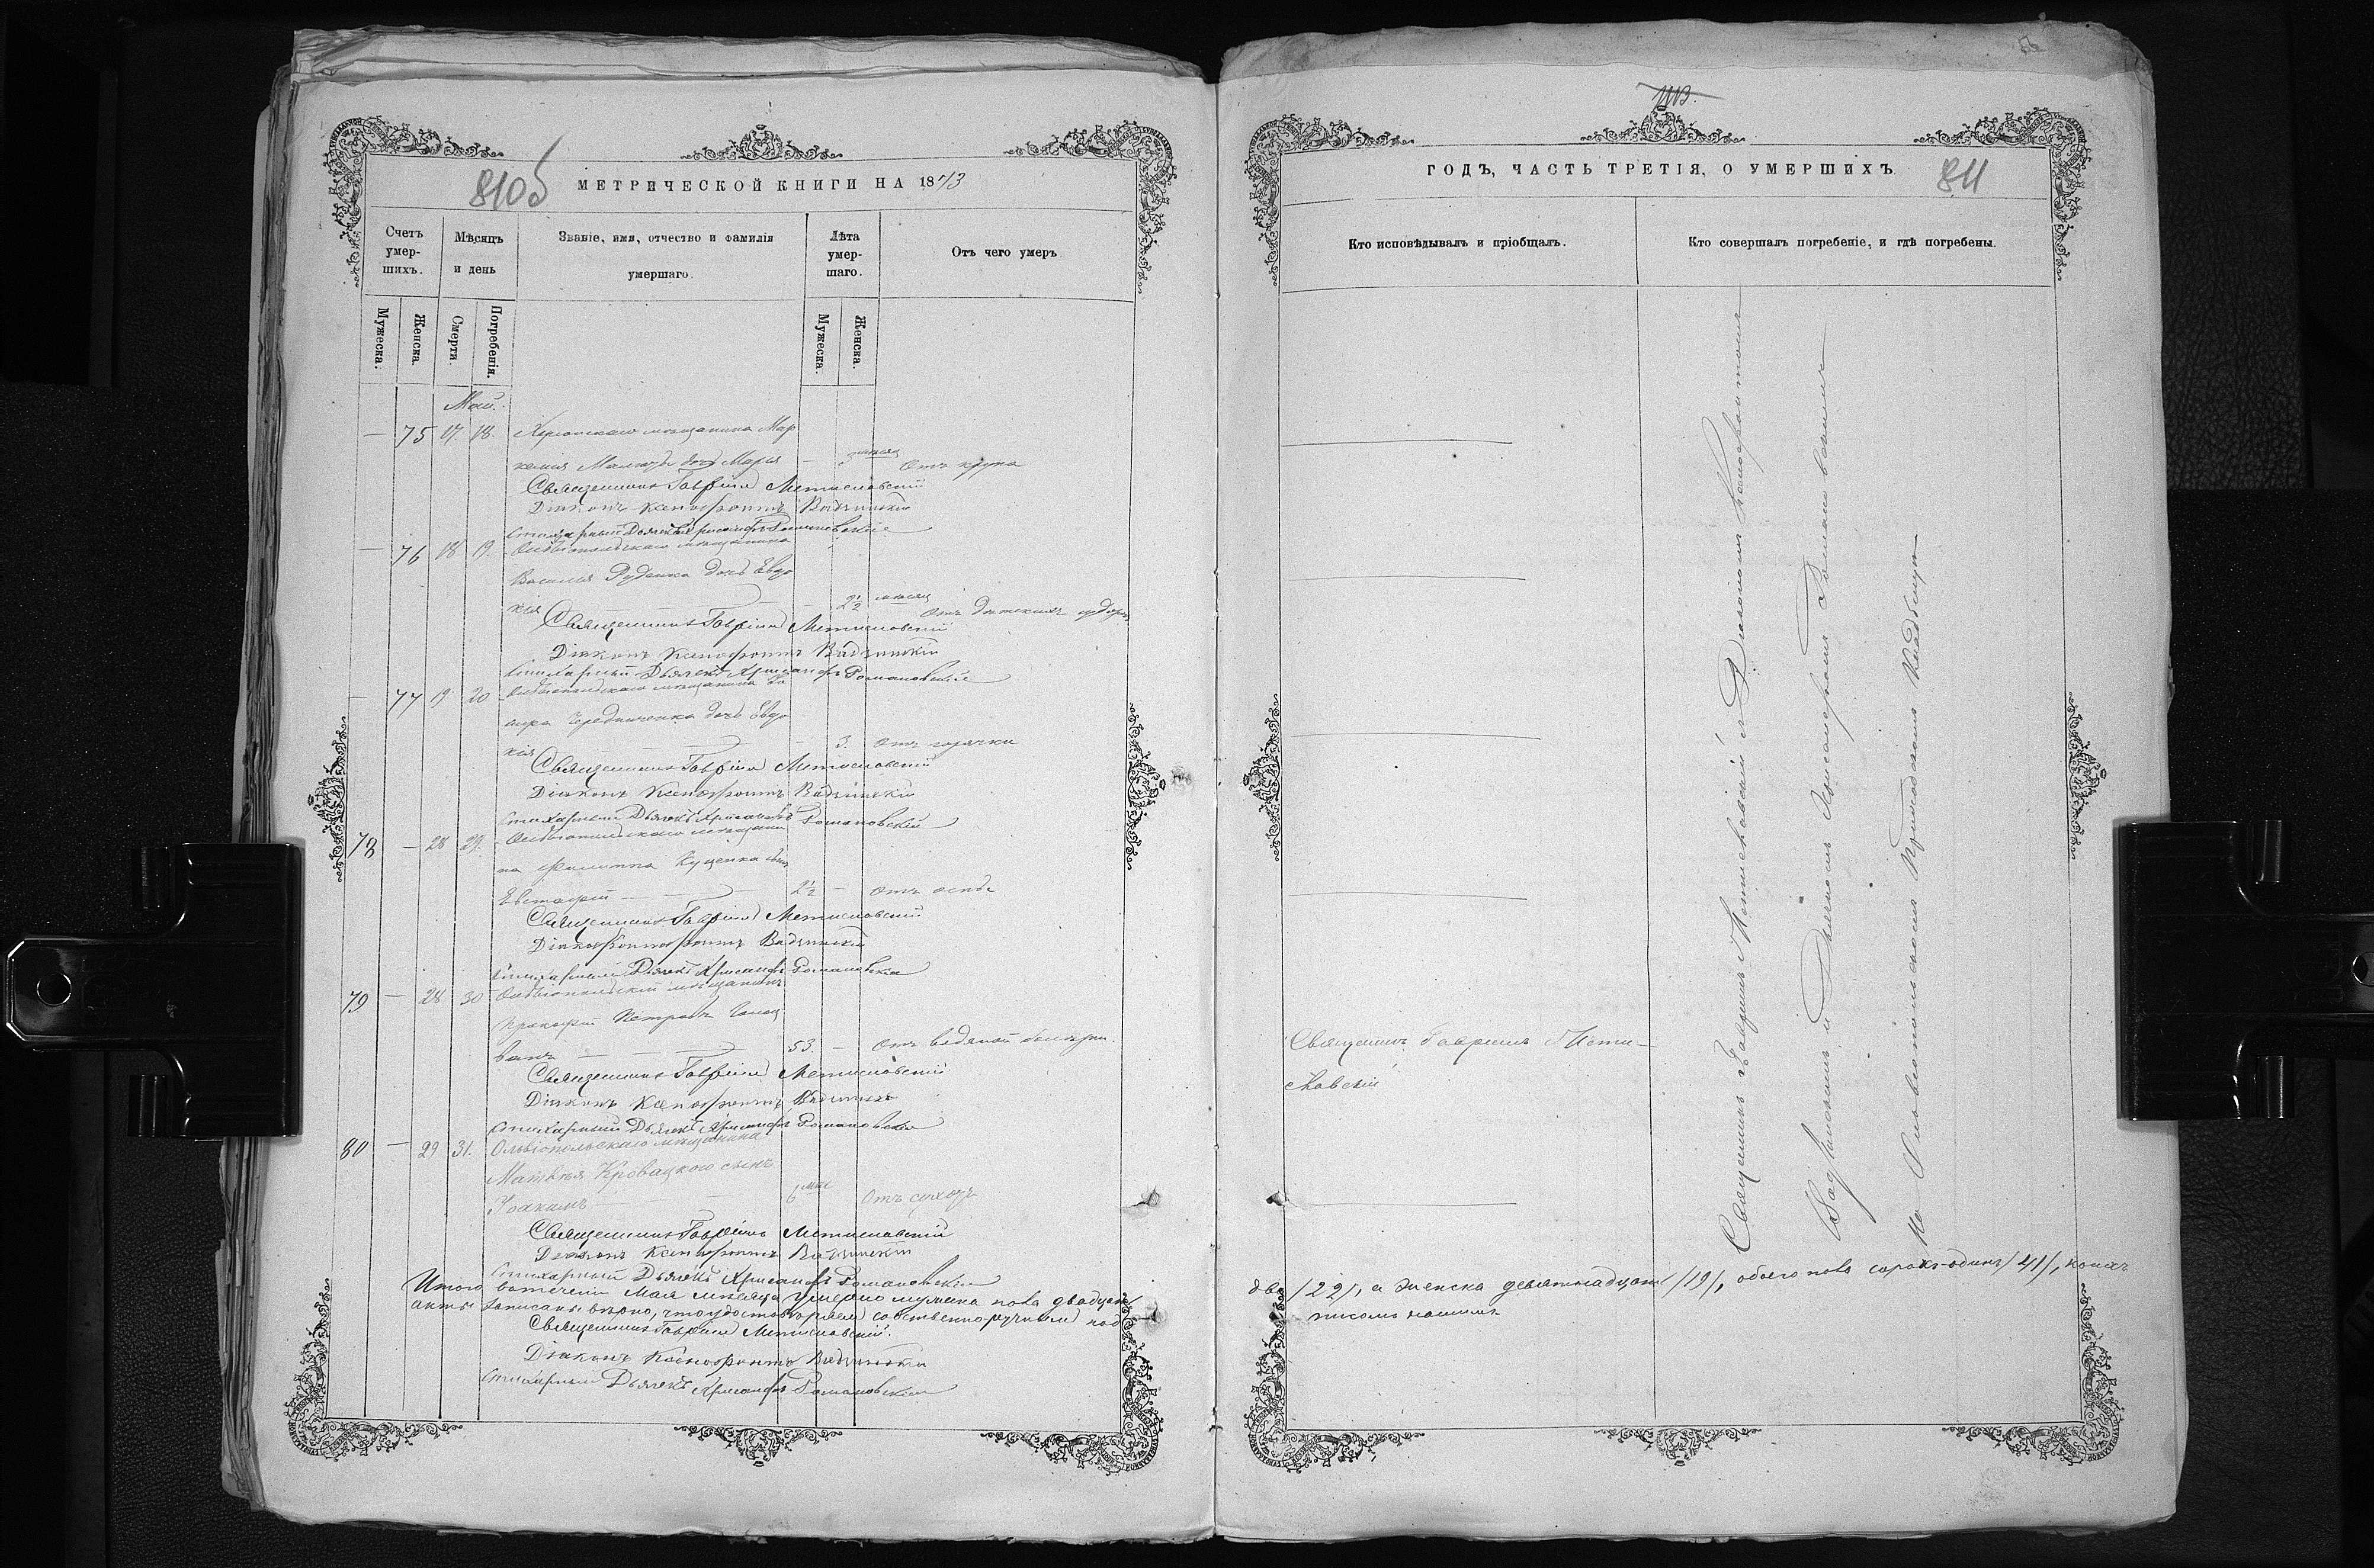 810б
МЕТРИЧЕСКОЙ КНИГИ НА 1873
Счетъ умер-шихъ.
Мѣсяцъ и день
Званіе, имя, отчество и фамилія умершаго.
Лѣта умер-шаго.
Отъ чего умеръ
Мужеска.
Женска.
Смерти.
Погребенія.
Мужеска.
Женска.
Май.
— 75 17. 18. мѣщанина Мар
дочь Марія — Отъ крупа
Священникъ Гавріилъ Мстиславскій
Діаконъ Ксенофонтъ Вадзинскій
Стихарный Дьячекъ Хрисанфъ Романовскій
— 76 18 19. Ольвіопольскаго мѣщанина
Василія Руденка дочь Евдо
кія — 2½ мѣсяц Отъ дѣтскихъ
Священникъ Гавріилъ Мстиславскій
Діаконъ Ксенофонтъ Вадзинскій
Стихарный Дьячекъ Хрисанфъ Романовскій
— 77 19. 20 Ольвіопольскаго мѣщанина
Чередниченка дочь Евдо
кія — 3. Отъ горячки
Священникъ Гавріилъ Мстиславскій
Діаконъ Ксенофонтъ Вадзинскій
Стихарный Дьячекъ Хрисанфъ Романовскій
78 — 28 29. Ольвіопольскаго мѣщани
на Филиппа Куценка сынъ
Евстафій — 2½ — Отъ оспы
Священникъ Гавріилъ Мстиславскій
Вадзинскій
Стихарный Дьячекъ Хрисанфъ Романовскій
79 — 28 30 Ольвіопольскій мѣщанинъ
Прокофій Петровъ Голов
ванъ — 53. — Отъ водяной болѣзни.
Священникъ Гавріилъ Мстиславскій
Діаконъ Ксенофонтъ Вадзинскій
Стихарный Дьячекъ Хрисанфъ Романовскій
80 — 29 31. Ольвіопольскаго мѣщанина
Матвѣя Кровацкого сынъ
Іоакимъ — 6 мѣс Отъ сухотъ
Священникъ Гавріилъ Мстиславскій
Діаконъ Ксенофонтъ Вадзинскій
Стихарный Дьячекъ Хрисанфъ Романовскій
Итого втеченіи Мая мѣсяца умерло мужска пола двадцать
акты записаны вѣрно, что удостовѣряемъ собственноручнымъ под
Священникъ Гавріилъ Мстиславскій.
Діаконъ Ксенофонтъ Вадзинскій
Стихарный Дьячекъ Хрисанфъ Романовскій
ГОДЪ, ЧАСТЬ ТРЕТІЯ, О УМЕРШИХЪ.
811
Кто исповѣдывалъ и пріобщалъ.
Кто совершалъ погребеніе, и гдѣ погребены.
Священникъ Гавріилъ Мсти-
славскій
Священникъ Гавріилъ Мстиславскій съ Діакономъ Ксенофонтомъ
Вадзинскимъ и Дьячкомъ Хрисанфомъ Романовскимъ
На Ольвіопольскомъ Приходскомъ Кладбищѣ
два /22/, а женска девятнадцать /19/, обоего пола сорокъ-одинъ /41/, коихъ
писомъ нашимъ